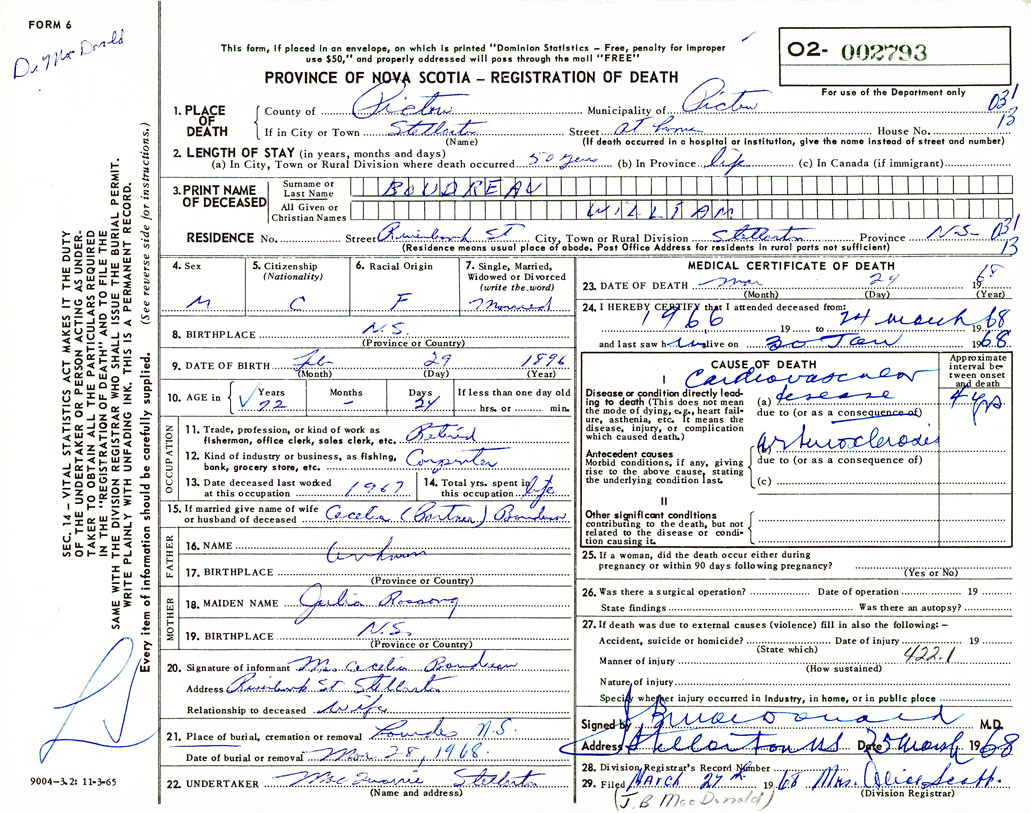 FORM 6
Dr MacDonald
This form, if placed in an envelope, on which is printed "Dominion Statistics – Free, penalty for improper
use $50," and properly addressed will pass through the mail "FREE"
PROVINCE OF NOVA SCOTIA – REGISTRATION OF DEATH
O2- 002793
For use of the Department only
031
13
1. PLACE OF DEATH
County of Pictou Municipality of Pictou
If in City or Town Stellarton Street at home House No.
(Name) (If death occurred in a hospital or institution, give the name instead of street and number)
2. LENGTH OF STAY (in years, months and days)
(a) In City, Town or Rural Division where death occurred 50 years (b) In Province life (c) In Canada (if immigrant)
3. PRINT NAME OF DECEASED
Surname or Last Name BOUDREAU
All Given or Christian Names WILLIAM
RESIDENCE No. Street St City, Town or Rural Division Stellarton Province N.S- 031
13
(Residence means usual place of abode. Post Office Address for residents in rural parts not sufficient)
4. Sex M
5. Citizenship (Nationality) C
6. Racial Origin F
7. Single, Married, Widowed or Divorced (write the word) Married
8. BIRTHPLACE N.S.
(Province or Country)
9. DATE OF BIRTH Feb 29 1896
(Month) (Day) (Year)
10. AGE in Years 72 Months - Days 24 If less than one day old hrs. or min.
OCCUPATION
11. Trade, profession, or kind of work as fisherman, office clerk, sales clerk, etc. Retired
12. Kind of industry or business, as fishing, bank, grocery store, etc. Carpenter
13. Date deceased last worked at this occupation 1967
14. Total yrs. spent in this occupation life
15. If married give name of wife or husband of deceased Cecelia ( ) Boudreau
FATHER
16. NAME Unknown
17. BIRTHPLACE
(Province or Country)
MOTHER
18. MAIDEN NAME Julia
19. BIRTHPLACE N.S.
(Province or Country)
20. Signature of informant Mrs Cecelia Boudreau
Address St Stellarton
Relationship to deceased Wife
21. Place of burial, cremation or removal Lourdes N.S.
Date of burial or removal Mar. 28, 1968.
22. UNDERTAKER Stellarton
(Name and address)
MEDICAL CERTIFICATE OF DEATH
23. DATE OF DEATH Mar 24 1968
(Month) (Day) (Year)
24. I HEREBY CERTIFY that I attended deceased from:
1966 19 to 24 March 1968
and last saw him alive on 30 Jan 1968
CAUSE OF DEATH
Approximate interval between onset and death
I
Disease or condition directly leading to death (This does not mean the mode of dying, e.g., heart failure, asthenia, etc. It means the disease, injury, or complication which caused death.)
Cardiovascular
(a) desease 4 yrs
due to (or as a consequence of)
Antecedent causes
Morbid conditions, if any, giving rise to the above cause, stating the underlying condition last.
(b)
due to (or as a consequence of)
(c)
II
Other significant conditions contributing to the death, but not related to the disease or condition causing it.
25. If a woman, did the death occur either during
pregnancy or within 90 days following pregnancy?
(Yes or No)
26. Was there a surgical operation? Date of operation 19
State findings Was there an autopsy?
27. If death was due to external causes (violence) fill in also the following: –
Accident, suicide or homicide? Date of injury 19
(State which)
422.1
Manner of injury
(How sustained)
Nature of injury
Specify whether injury occurred in industry, in home, or in public place
Signed by J B MacDonald M.D.
Address Stellarton NS Date 25 March 1968
28. Division Registrar's Record Number
29. Filed March 27th 1968 Mrs. Alice Scott.
(Division Registrar)
(J. B MacDonald)
SEC. 14 – VITAL STATISTICS ACT MAKES IT THE DUTY
OF THE UNDERTAKER OR PERSON ACTING AS UNDER-
TAKER TO OBTAIN ALL THE PARTICULARS REQUIRED
IN THE "REGISTRATION OF DEATH" AND TO FILE THE
SAME WITH THE DIVISION REGISTRAR WHO SHALL ISSUE THE BURIAL PERMIT.
WRITE PLAINLY WITH UNFADING INK. THIS IS A PERMANENT RECORD.
Every item of information should be carefully supplied. (See reverse side for instructions.)
9004-3.2: 11-3-65